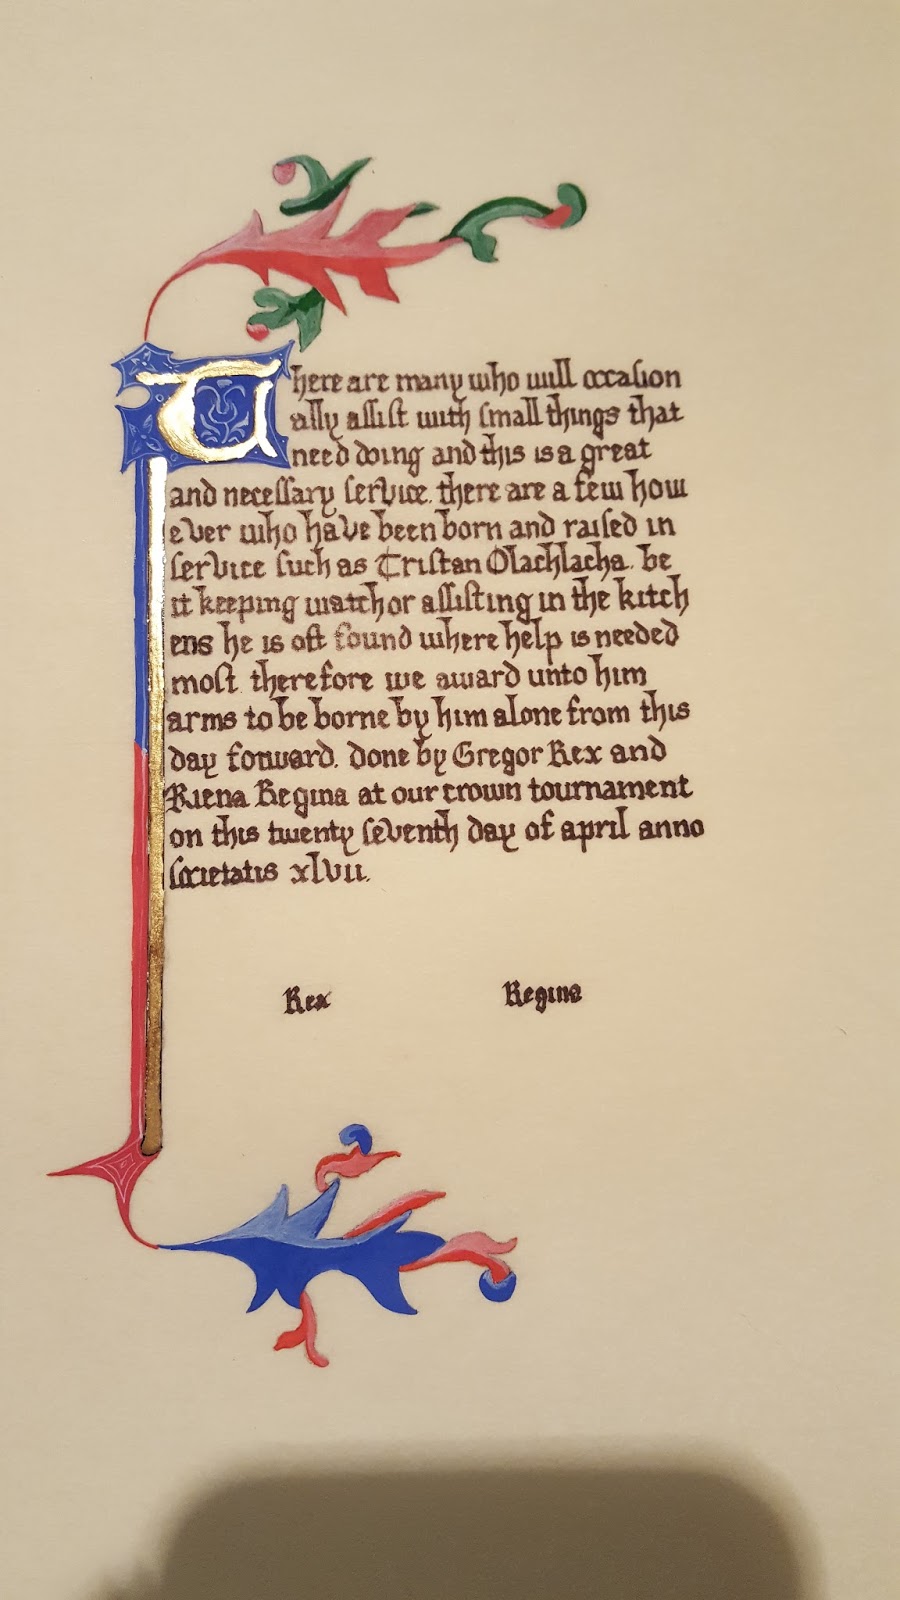 There are many who will occasion
ally assist with small things that
need doing and this is a great
and necessary service. there are a few how
ever who have been born and raised in
service such as Tristan Olachlacha. be
it keeping watch or assisting in the kitch
ens he is oft found where help is needed
most. therefore we award unto him
arms to be borne by him alone from this
day forward. done by Gregor Rex and
Riena Regina at our crown tournament
on this twenty seventh day of april anno
societatis xlvii.
Rex Regina